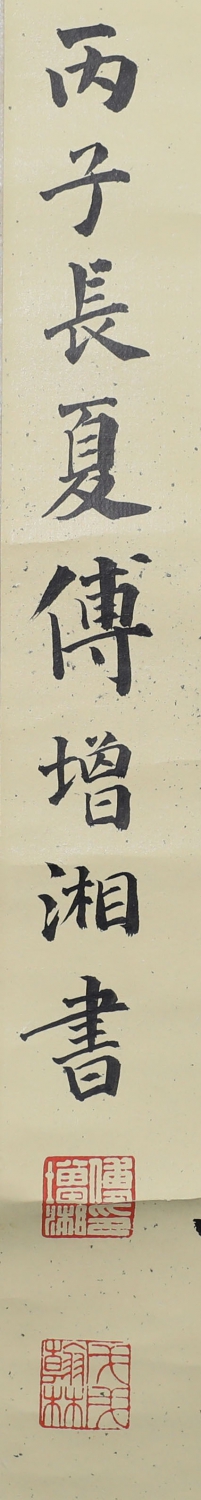 丙子長夏傅增湘書
傅印增湘
戊戌翰林